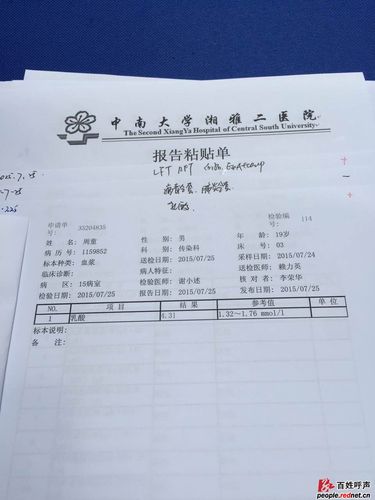 中南大学湘雅二医院
The Second XiangYa Hospital of Central South University
报告粘贴单
申请单号: 33204835 检验编号: 114
姓 名: 周童 性 别: 男 年 龄: 19岁
病 历 号: 1159852 科 别: 传染科 床 号: 03
标本种类: 血浆 送检日期: 2015/07/25 采样日期: 2015/07/24
临床诊断: 病人特征: 送检医师: 赖力英
病 区: 15病室 检验医师: 谢小述 核 对 者: 李荣华
检验日期: 2015/07/25 报告日期: 2015/07/25 发布日期: 2015/07/25
NO. 项 目 结 果 参考值 单 位
1 乳酸 4.31 1.32~1.76 mmol/l
标本说明:
备 注:
百姓呼声
people.rednet.cn